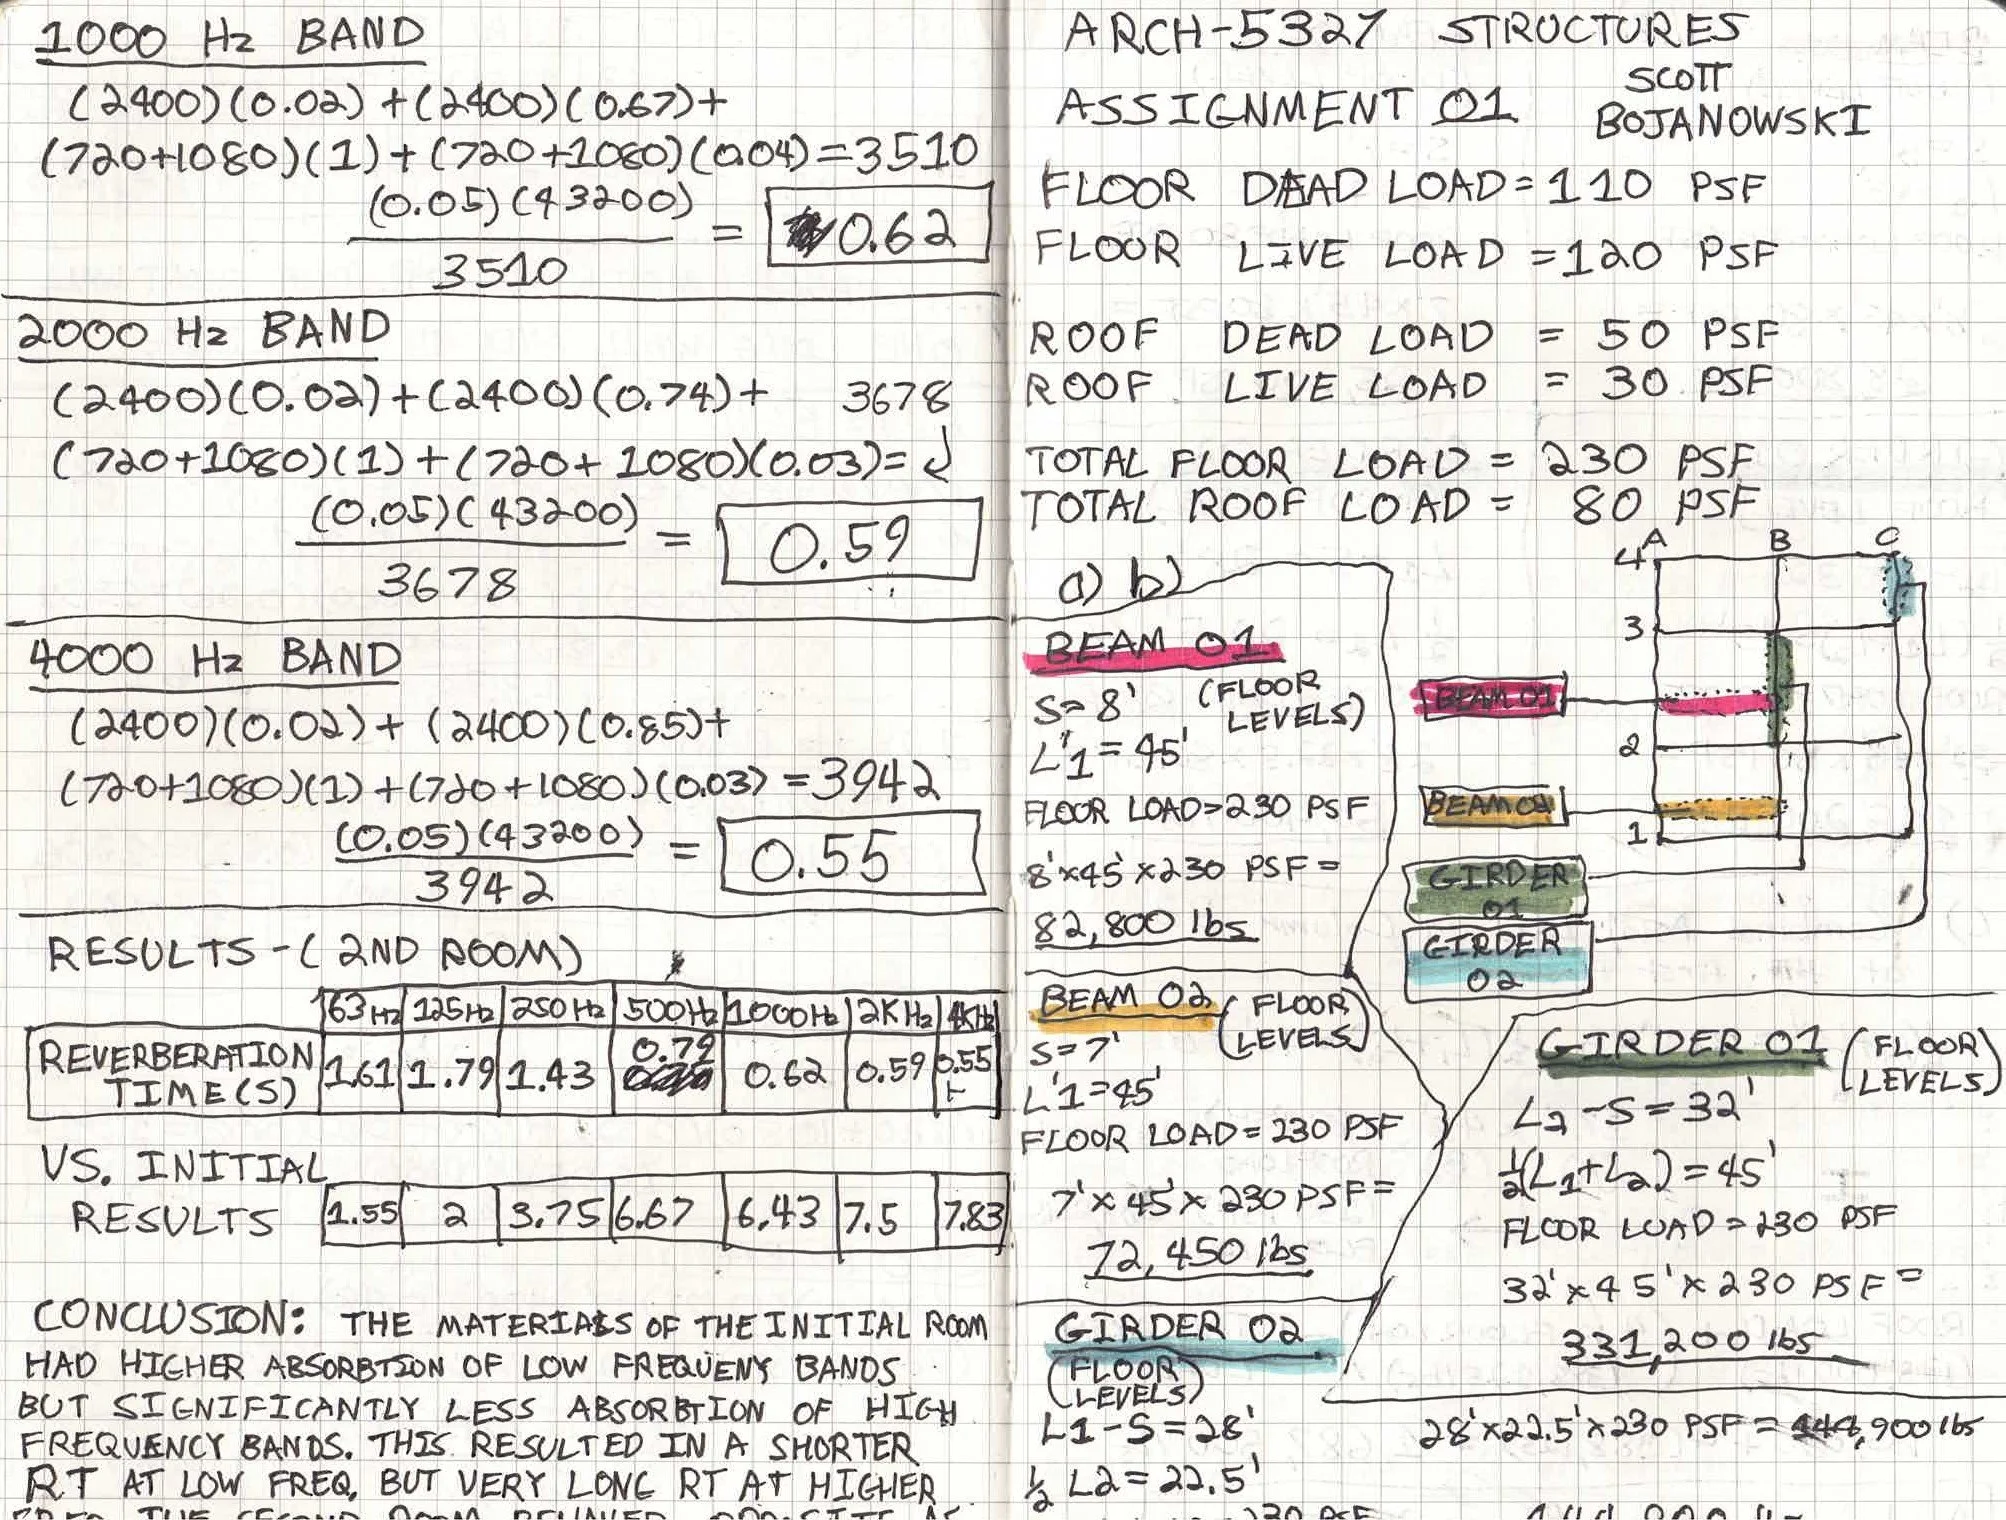 1000 Hz BAND
(2400)(0.02) + (2400)(0.67)+
(720+1080)(1) + (720+1080)(0.04)=3510
(0.05)(43200)
3510
= 0.62
2000 Hz BAND
(2400)(0.02)+(2400)(0.74)+ 3678
(720+1080)(1)+(720+1080)(0.03)=
(0.05)(43200)
3678
= 0.59
4000 Hz BAND
(2400)(0.02)+(2400)(0.85)+
(720+1080)(1)+(720+1080)(0.03) = 3942
(0.05)(43200)
3942
= 0.55
RESULTS-(2ND ROOM)
63Hz 125Hz 250Hz 500Hz 1000Hz 2KHz 4KHz
REVERBERATION
TIME(S)
1.61 1.79 1.43 0.79 0.62 0.59 0.55
VS. INITIAL
RESULTS 1.55 2 3.75 6.67 6.43 7.5 7.83
CONCLUSION: THE MATERIALS OF THE INITIAL ROOM
HAD HIGHER ABSORBTION OF LOW FREQUENY BANDS
BUT SIGNIFICANTLY LESS ABSORBTION OF HIGH
FREQUENCY BANDS. THIS RESULTED IN A SHORTER
RT AT LOW FREQ, BUT VERY LONG RT AT HIGHER
ARCH-5327 STRUCTURES
ASSIGNMENT 01
SCOTT
BOJANOWSKI
FLOOR DEAD LOAD=110 PSF
FLOOR LIVE LOAD =120 PSF
ROOF DEAD LOAD = 50 PSF
ROOF LIVE LOAD = 30 PSF
TOTAL FLOOR LOAD = 230 PSF
TOTAL ROOF LOAD = 80 PSF
a) b)
A B C
4
3
2
1
BEAM 01
BEAM 02
GIRDER
01
GIRDER
02
BEAM 01
(FLOOR
LEVELS)
S=8'
L'1=45'
FLOOR LOAD=230 PSF
8'×45'×230 PSF=
82,800 lbs
BEAM 02
(FLOOR
LEVELS)
S=7'
L'1=45'
FLOOR LOAD=230 PSF
7'×45'×230 PSF=
72,450 lbs
GIRDER 01
(FLOOR
LEVELS)
L2-S=32'
½(L1+L2)=45'
FLOOR LOAD=230 PSF
32'×45'×230 PSF=
331,200 lbs
GIRDER 02
(FLOOR
LEVELS)
L1-S=28'
½ L2=22.5'
230 PSF
28'×22.5'×230 PSF = 144,900 lbs